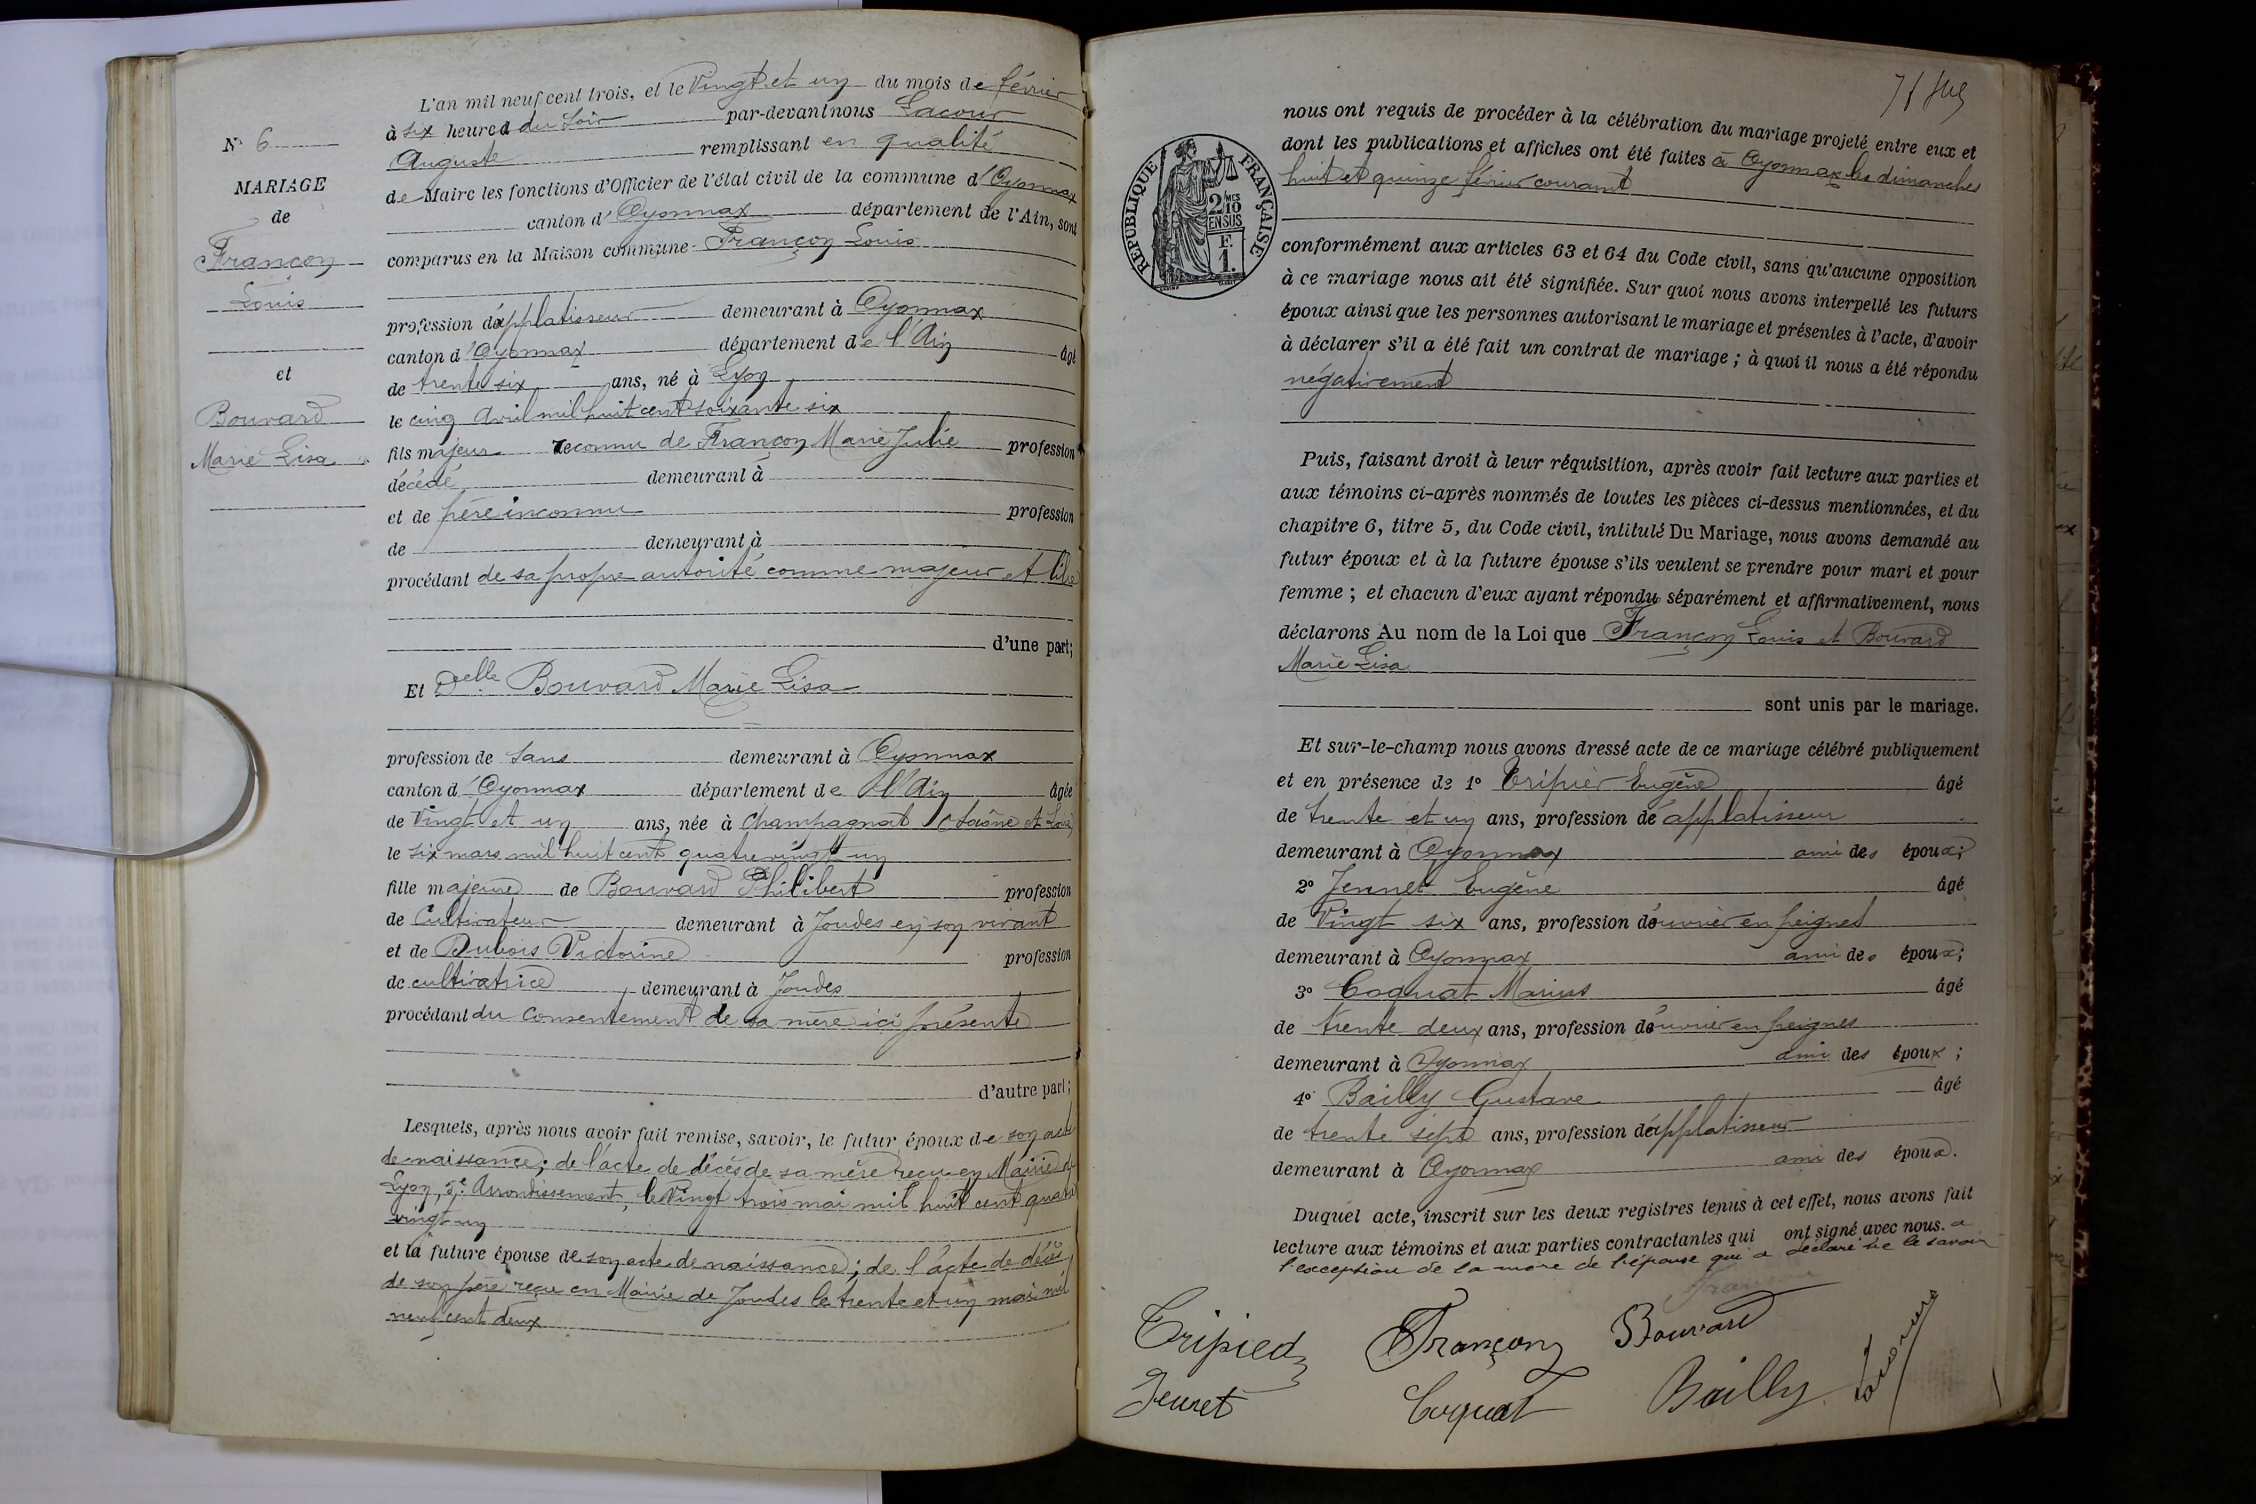 N° 6
MARIAGE
de
Françon
Louis
et
Bouvard
Marie Lisa
L'an mil neuf cent trois, et le Vingt et un du mois de février
à six heures du soir par-devant nous Lacour
Auguste remplissant en qualité
de Maire les fonctions d'Officier de l'état civil de la commune d'Oyonnax
canton d'Oyonnax département de l'Ain, sont
comparus en la Maison commune Françon Louis
profession d'applatisseur demeurant à Oyonnax
canton d'Oyonnax département de l'Ain âgé
de trente six ans, né à Lyon
le cinq avril mil huit cent soixante six
fils majeur reconnu de Françon Marie Julie profession
décédé demeurant à
et de père inconnu profession
de demeurant à
procédant de sa propre autorité comme majeur et libre
d'une part;
Et Delle Bouvard Marie Lisa
profession de sans demeurant à Oyonnax
canton d'Oyonnax département de l'Ain âgée
de Vingt et un ans, née à Champagnat (Saône et Loire)
le six mars mil huit cent quatre vingt un
fille majeure de Bouvard Philibert profession
de Cultivateur demeurant à Joudes en son vivant
et de Dubois Victorine profession
de cultivatrice demeurant à Joudes
procédant du consentement de sa mère ici présente
d'autre part;
Lesquels, après nous avoir fait remise, savoir, le futur époux de son acte
de naissance; de l'acte de décès de sa mère reçu en Mairie de
Lyon, 5e Arrondissement, le Vingt trois mai mil huit cent quatre
vingt un
et la future épouse de son acte de naissance; de l'acte de décès
de son père reçu en Mairie de Joudes le trente et un mai mil
neuf cent deux
RÉPUBLIQUE FRANÇAISE
2 MES
10
EN SUS
F.
1.
nous ont requis de procéder à la célébration du mariage projeté entre eux et
dont les publications et affiches ont été faites à Oyonnax les dimanches
huit et quinze février courant
conformément aux articles 63 et 64 du Code civil, sans qu'aucune opposition
à ce mariage nous ait été signifiée. Sur quoi nous avons interpellé les futurs
époux ainsi que les personnes autorisant le mariage et présentes à l'acte, d'avoir
à déclarer s'il a été fait un contrat de mariage; à quoi il nous a été répondu
négativement
Puis, faisant droit à leur réquisition, après avoir fait lecture aux parties et
aux témoins ci-après nommés de toutes les pièces ci-dessus mentionnées, et du
chapitre 6, titre 5, du Code civil, intitulé Du Mariage, nous avons demandé au
futur époux et à la future épouse s'ils veulent se prendre pour mari et pour
femme; et chacun d'eux ayant répondu séparément et affirmativement, nous
déclarons Au nom de la Loi que Françon Louis et Bouvard
Marie Lisa
sont unis par le mariage.
Et sur-le-champ nous avons dressé acte de ce mariage célébré publiquement
et en présence de 1° Tripier Eugène âgé
de trente et un ans, profession d'applatisseur
demeurant à Oyonnax ami des époux;
2° Jeunet Eugène âgé
de Vingt six ans, profession d'ouvrier en peignes
demeurant à Oyonnax ami des époux;
3° Coquat Marius âgé
de trente deux ans, profession d'ouvrier en peignes
demeurant à Oyonnax ami des époux;
4° Bailly Gustave âgé
de trente sept ans, profession d'applatisseur
demeurant à Oyonnax ami des époux.
Duquel acte, inscrit sur les deux registres tenus à cet effet, nous avons fait
lecture aux témoins et aux parties contractantes qui ont signé avec nous. a
l'exception de la mère de l'épouse qui a déclaré ne le savoir
Tripied Françon Bouvard
Jeunet Coquat Bailly